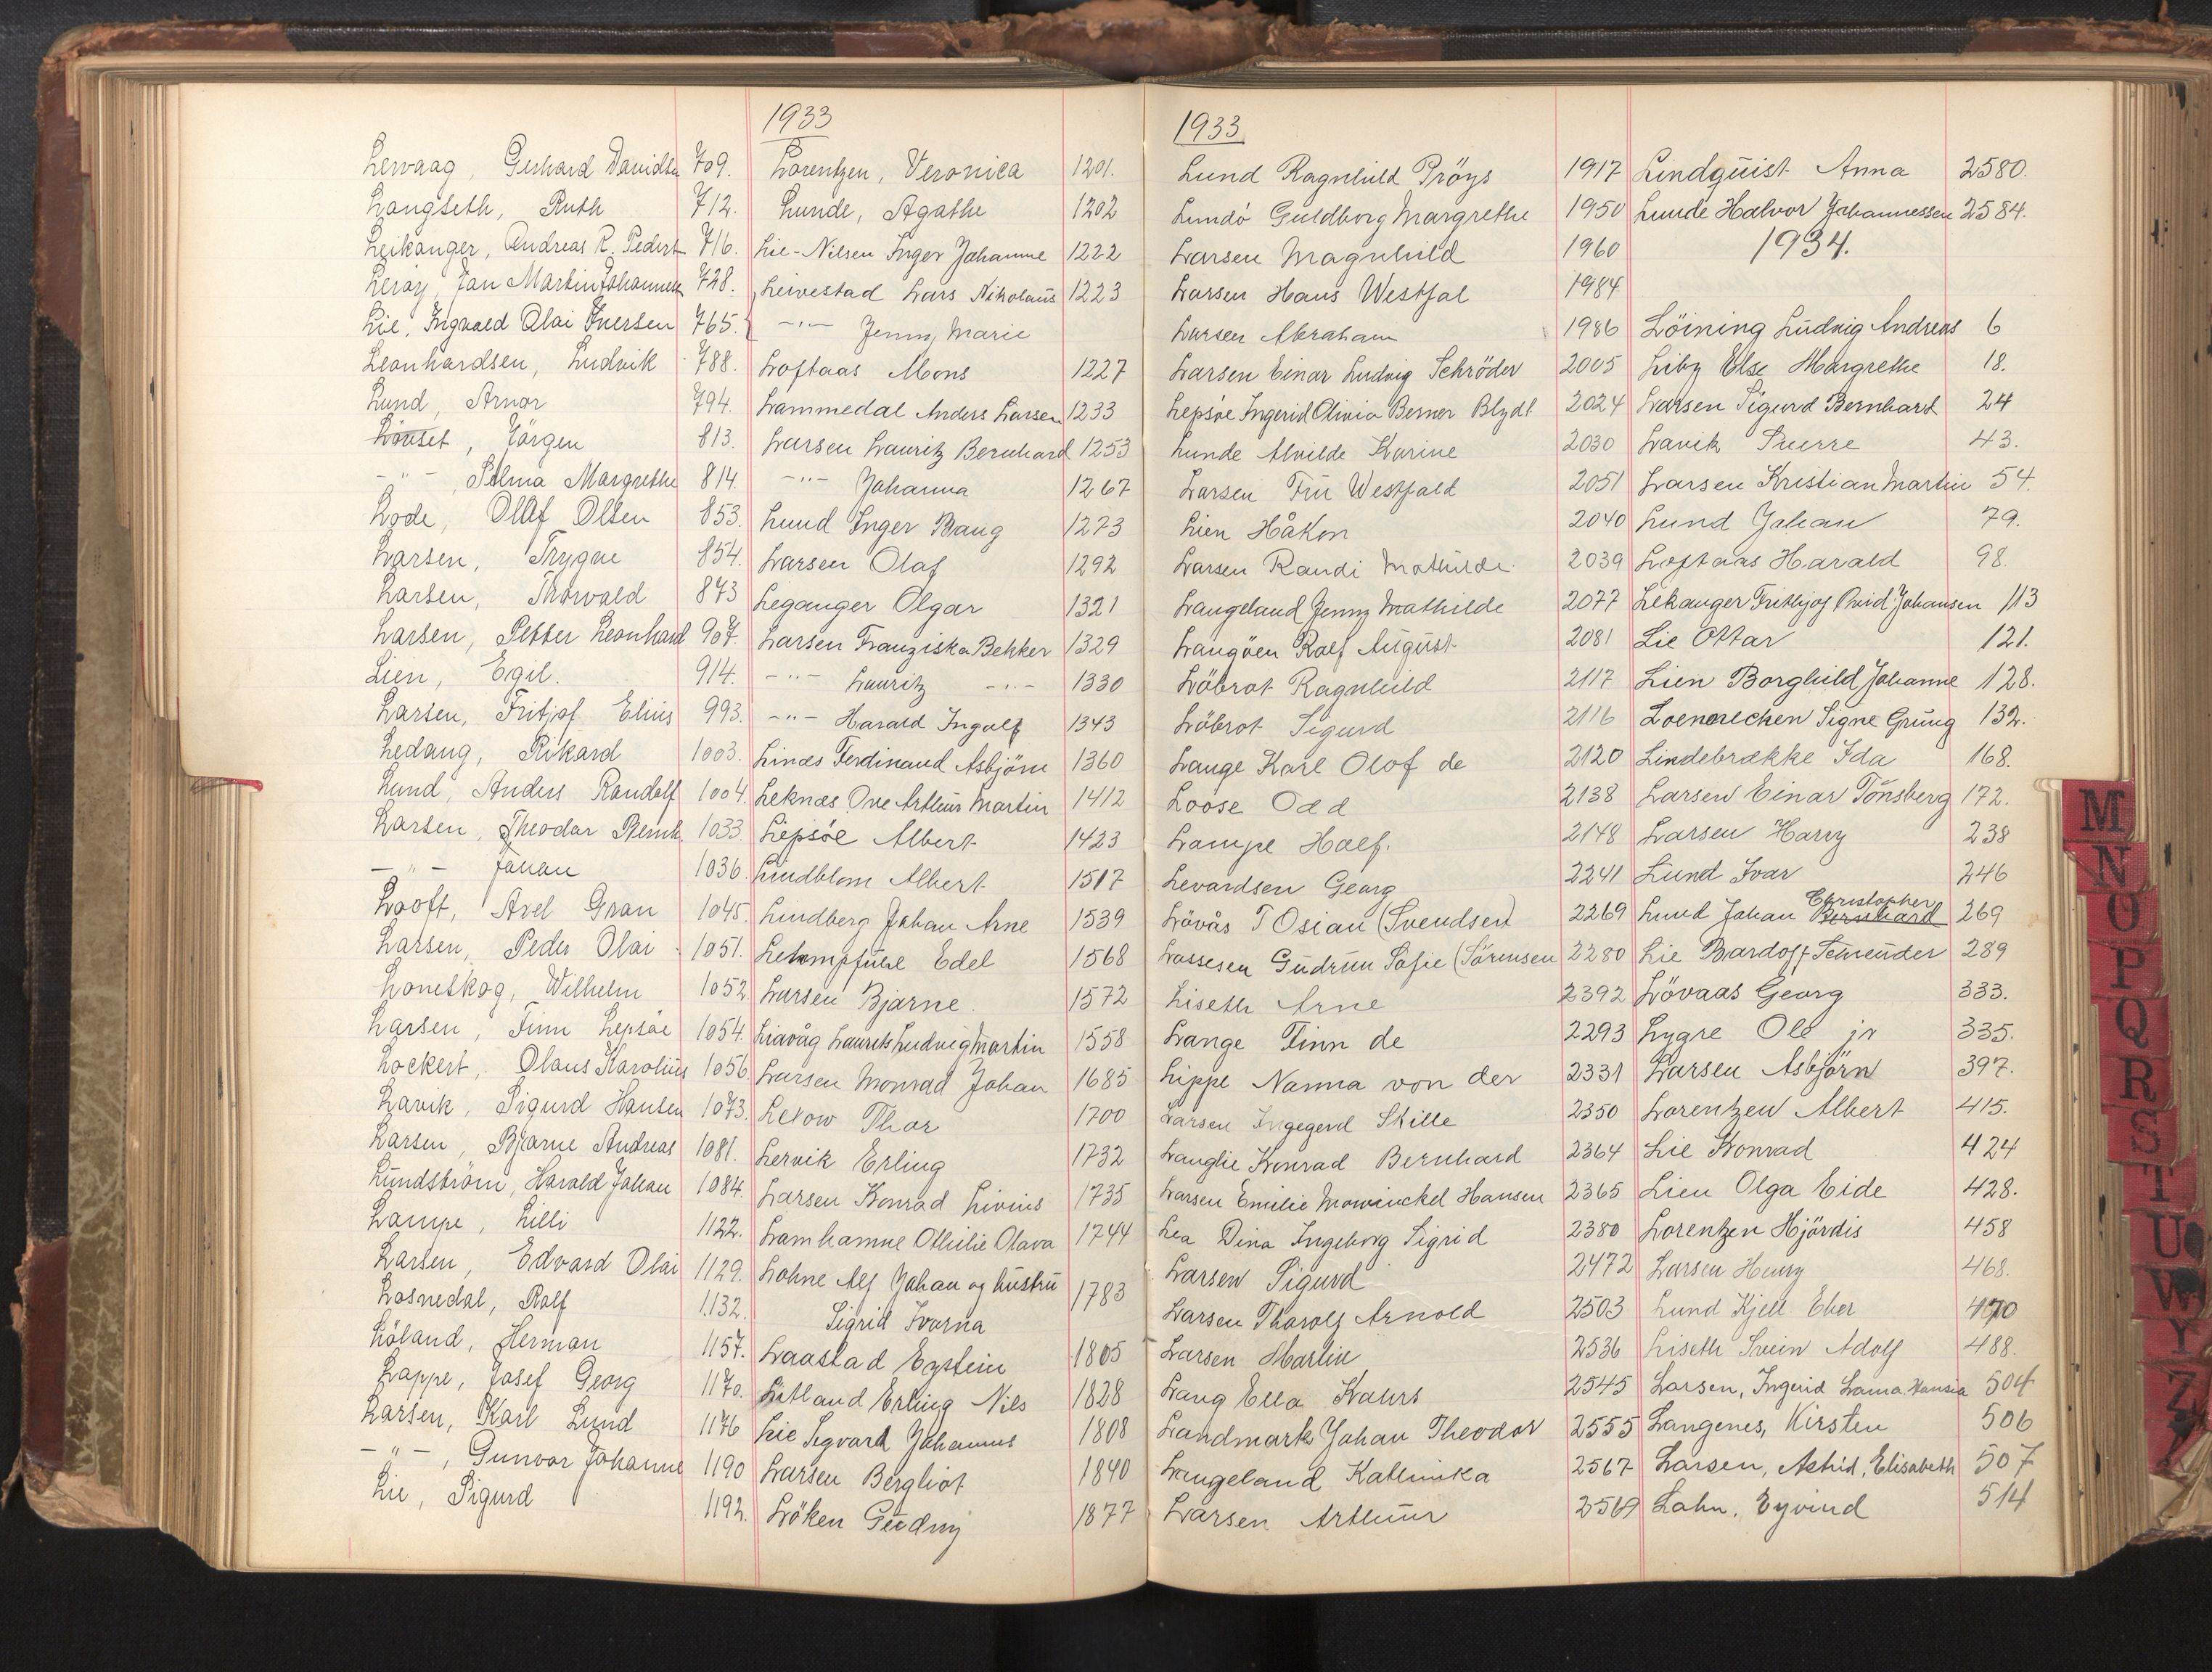 1933
Lervaag, Gerhard Davidsn 709.
Langseth, Ruth 712.
Leikanger, Andreas R. Peders 716.
Lerøy, Jan Martin Johannes 728.
Lie, Ingvald Olai Iversen 765.
Leonhardsen, Ludvik 788.
Lund, Arnor 794.
Lönset, Jörgen 813.
-"- , Selma Margrethe 814.
Lode, Olaf Olsen 853.
Larsen, Trygve 854.
Larsen, Thorvald 873
Larsen, Petter Leonhard 907.
Lien, Egil. 914.
Larsen, Fritjof Elius 993.
Ledang, Rikard 1003.
Lund, Anders Randolf 1004.
Larsen, Theodor Bernh. 1033
-"- Johan 1036.
Looft, Axel Gran 1045.
Larsen, Peder Olai 1051.
Lonetkog, Wilhelm 1052
Larsen, Finn Lepsøe 1054.
Lockert, Olaus Karolius 1056
Lavik, Sigurd Hansen 1073.
Larsen, Bjarne Andreas 1081.
Lundström, Harald Johan 1084.
Lampe, Lilli 1122.
Larsen, Edvard Olai 1129.
Losnedal, Rolf 1132.
Löland, Herman 1157.
Lappe, Josef Georg 1170.
Larsen, Karl Lund 1176
-"- , Gunvor Johanne 1190
Lie, Sigurd 1192.
Lorentzen, Veronica 1201.
Lunde, Agathe 1202
Lie-Nilsen Inger Johanne 1222
Leivestad Lars Nikolaus 1223
-"- Jenny Marie
Loftaas Mons 1227
Lammedal Anders Larsen 1233
Larsen Lauritz Bernhard 1253
-"- Johanna 1267
Lund Inger Bang 1273
Larsen Olaf 1292
Leganger Olgar 1321
Larsen Franziska Bekker 1329
-"- Lauritz -"- 1330
-"- Harald Ingolf 1343
Linds Ferdinand Asbjörn 1360
Leknæs Ove Arthur Martin 1412
Liepsöe Albert 1423
Lindblom Albert 1517
Lindberg Johan Arne 1539
Edel 1568
Larsen Bjarne 1572
Liavåg Laurits Ludvig Martin 1558
Larsen Monrad Johan 1685
Lexow Thor 1700
Lervik Erling 1732
Larsen Konrad Livius 1735
Lamhamne Othilie Olava 1744
Lohne Alf Johan og hustru
Sigrid Ivarna 1783
Laastad Eystein 1805
Litland Erling Nils 1828
Lie Sigvard Johannes 1808
Larsen Bergliot 1840
Löken Gudny 1877
1933
Lund Ragnhild Pröys 1917
Lundö Guldborg Margrethe 1950
Larsen Magnhild 1960
Larsen Hans Westfal 1984
Larsen Abraham 1986
Larsen Einar Ludvig Schröder 2005
Lepsöe Ingerid Olivia Berner Blydt 2024
Lunde Alvilde Karine 2030
Larsen Fru Westfald 2051
Lien Håkon 2040
Larsen Randi Mathilde 2039
Langeland Jenny Mathilde 2077
Langöen Rolf August 2081
Löbrot Ragnhild 2117
Löbrot Sigurd 2116
Lange Karl Olof de 2120
Loose Odd 2138
Lampe Half. 2148
Levardsen Georg 2241
Lövås T Osian (Svendsen) 2269
Lassesen Gudrun Sofie (Sörensen 2280
Liseth Arne 2392
Lange Finn de 2293
Lippe Nanna von der 2331
Larsen Ingegerd Skille 2350
Langlie Konrad Bernhard 2364
Larsen Emilie Mowinckel Hansen 2365
Lea Dina Ingeborg Sigrid 2380
Larsen Sigurd 2472
Larsen Tharolf Arnold 2503
Larsen Martin 2536
Lang Ella Kahrs 2545
Landmark Johan Theodor 2555
Langeland Kathinka 2567
Larsen Arthur 2569
Lindquist Anna 2580.
Lunde Halvor Johannessen 2584.
1934.
Löining Ludvig Andreas 6
Liby Else Margrethe 18.
Larsen Sigurd Bernhard 24
Lavik Sverre 43.
Larsen Kristian Martin 54.
Lund Johan 79.
Loftaas Harald 98.
Lekanger Frithjof Arvid Johansen 113
Lie Ottar 121.
Lien Borghild Johanne 128.
Loennechen Signe Grung 132.
Lindebrække Ida 168.
Larsen Einar Tönsberg 172.
Larsen Harry 238
Lund Ivar 246
Lund Johan Christopher Bernhard 269
Lie Bardoff 289
Lövaas Georg 333.
Lygre Ole jr 335.
Larsen Asbjörn 397.
Lorentzen Albert 415.
Lie Konrad 424
Lien Olga Eide 428.
Lorentzen Hjördis 458
Larsen Henry 468.
Lund Kjell Eber 470
Liseth Svein Adolf 488.
Larsen, Ingerid Lama Hansia 504
Langenes, Kirsten 506
Larsen, Astrid, Elisabeth 507
Lahn, Eyvind 514
M
N
O
P
Q
R
S
T
U
W
Y
Z